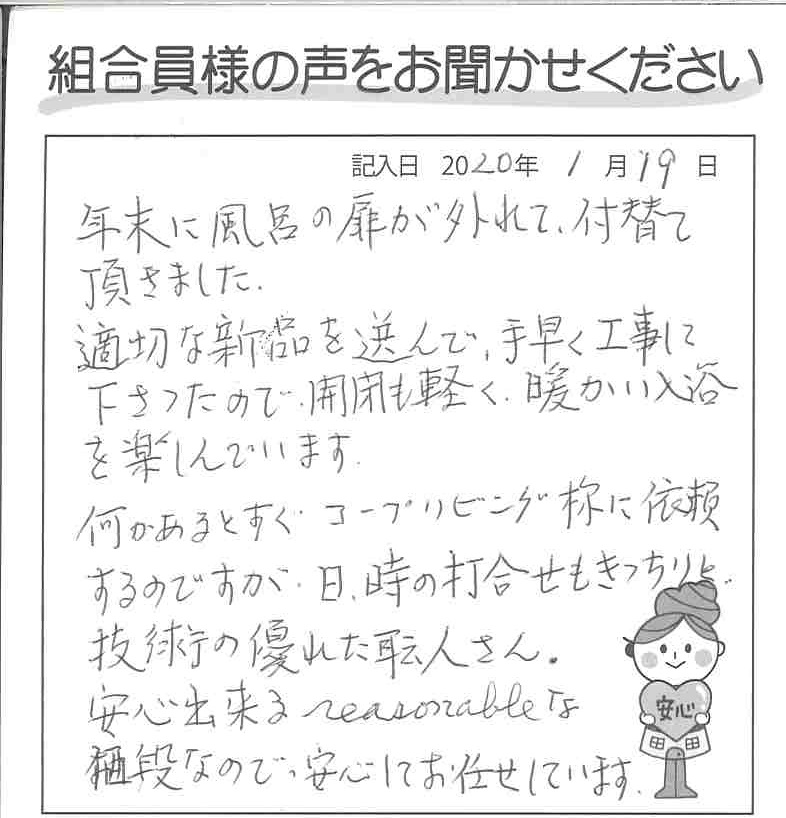 組合員様の声をお聞かせください
記入日 2020年 1月19日
年末に風呂の扉が外れて、付替て
頂きました.
適切な新品を送んで、手早く工事に
下さったので、開閉も軽く、暖かい入浴
を楽しんでいます.
何かあるとすぐコープリビング様に依頼
するのですが、日、時の打合せもきっちりと、
技術の優れた転人さん.
安心出来るreasonableな
値段なので、安心してお任せしています.
安心